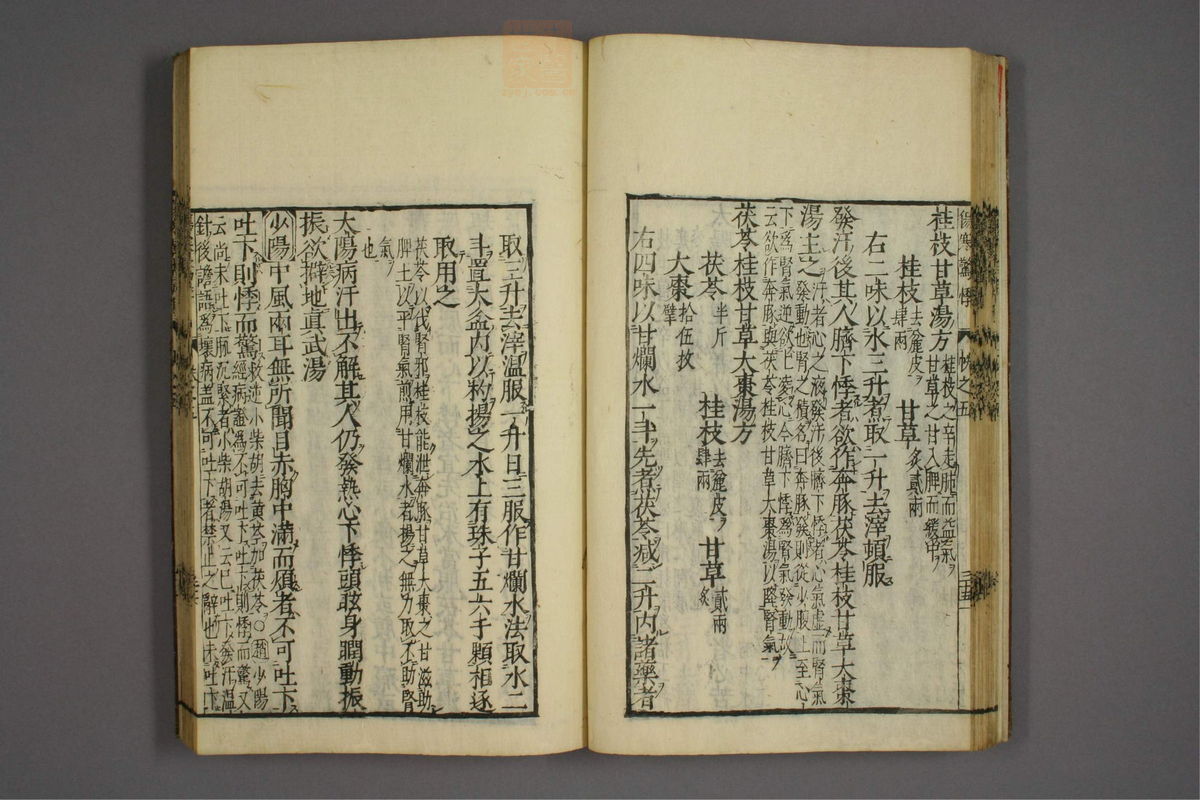 桂枝甘草湯方 桂枝之辛走肺而益氣
甘草之甘入脾而緩中
桂枝 去麄皮 肆兩 甘草 炙 貳兩
右二味以水三升煮取一升去滓頓服
發汗後其人臍下悸者欲作奔豚茯苓桂枝甘草大棗
湯主之 汗者心之液發汗後臍下悸者心氣虛而腎氣
發動也腎之積名曰奔豚發則從少腹上至心
下為腎氣逆欲上凌心今臍下悸為腎氣發動故
云欲作奔豚與茯苓桂枝甘草大棗湯以降腎氣
茯苓桂枝甘草大棗湯方
茯苓 半斤 桂枝 去麄皮 肆兩 甘草 貳兩 炙
大棗 拾伍枚 擘
右四味以甘爛水一斗先煮茯苓減二升內諸藥煮
取三升去滓溫服一升日三服作甘爛水法取水二
斗置大盆內以杓揚之水上有珠子五六千顆相逐
取用之
茯苓以伐腎邪桂枝能泄奔豚甘草大棗之甘滋助
脾土以平腎氣煎用甘爛水者揚之無力取不助腎
氣也
太陽病汗出不解其人仍發熱心下悸頭眩身瞤動振
振欲擗地真武湯
少陽中風兩耳無所聞目赤胸中滿而煩者不可吐下
吐下則悸而驚 救逆小柴胡去黃芩加茯苓○趙少陽
經病證為不可吐下吐下則悸而驚又
云尚未吐下脈沉緊者小柴胡湯又云已吐下發汗溫
針後譫語為壞病蓋不可吐下者禁止之辭也未吐下